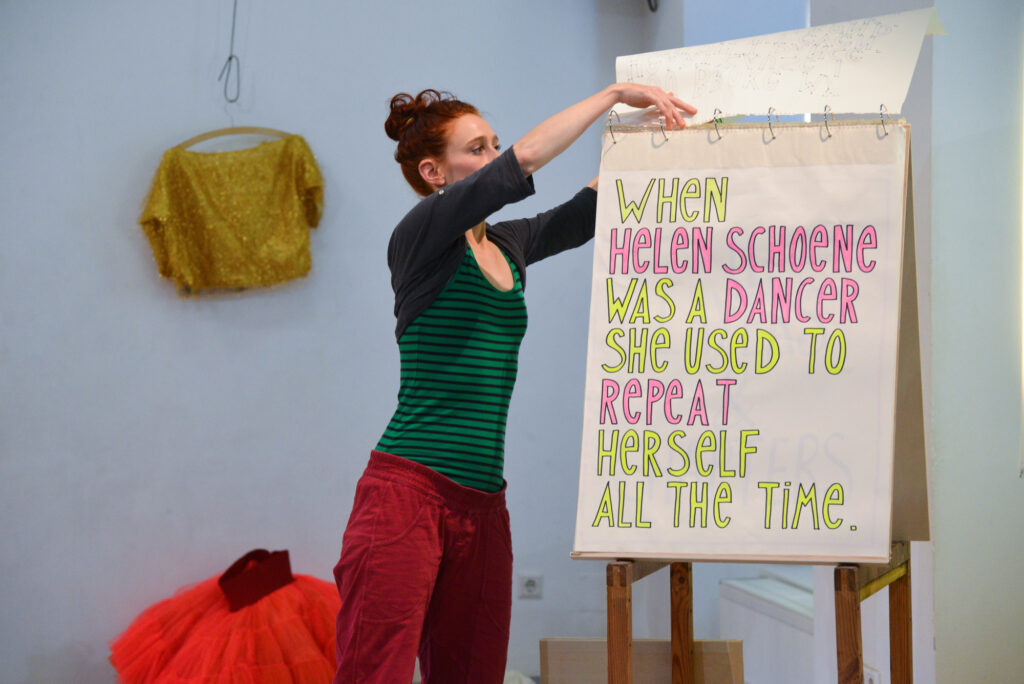 WHEN
HELEN SCHOENE
WAS A DANCER
SHE USED TO
REPEAT
HERSELF
ALL THE TIME.